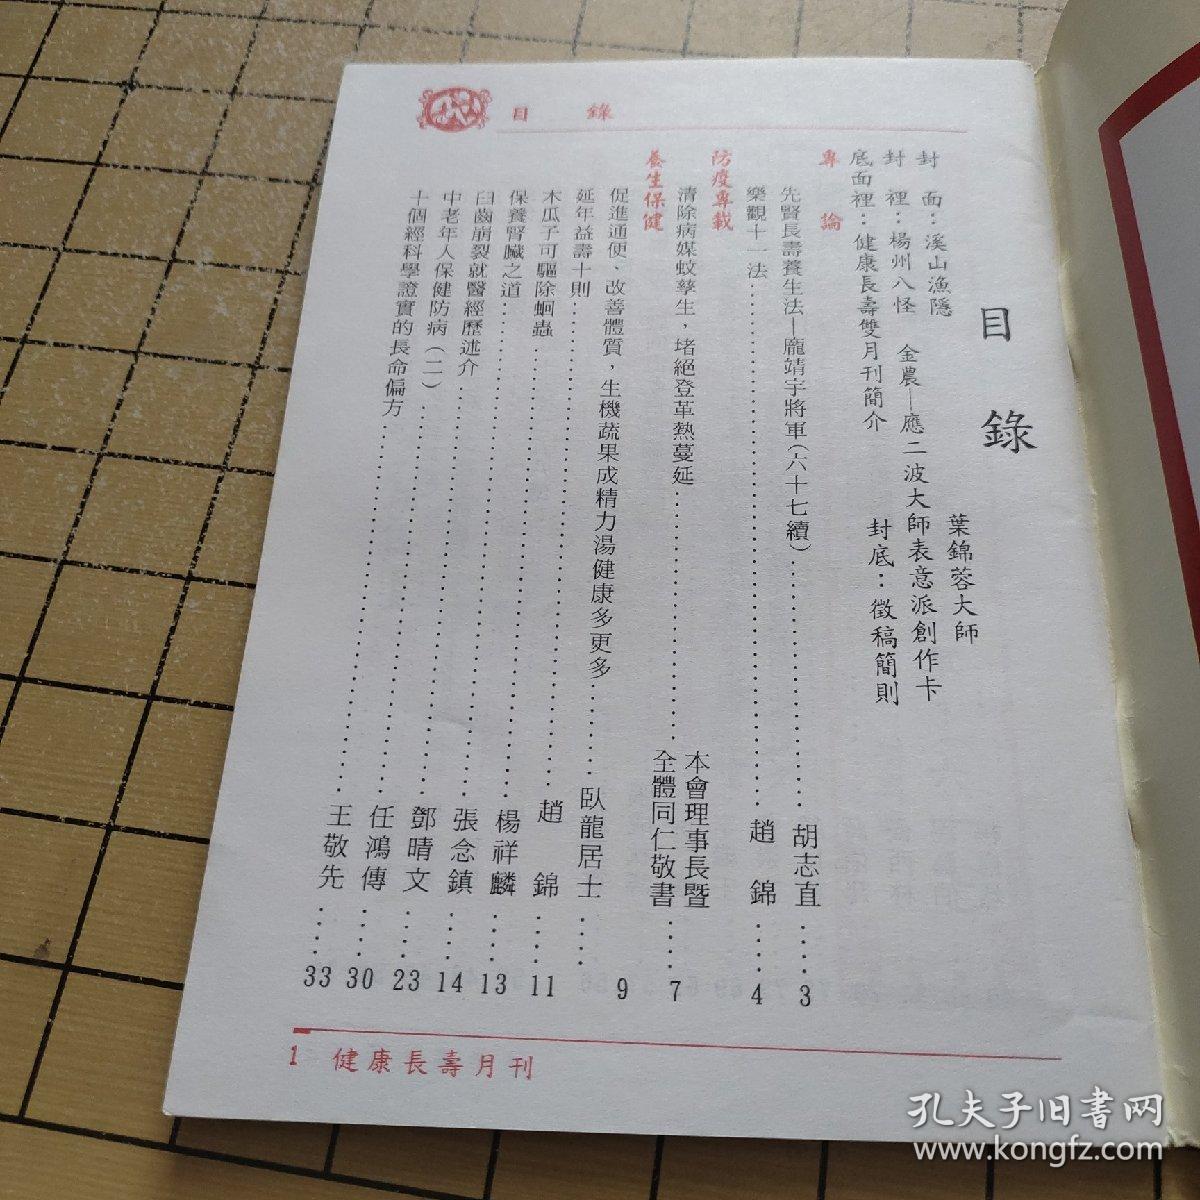 目錄
目錄
封面：溪山漁隱 葉錦蓉大師
封裡：楊州八怪 金農—應二波大師表意派創作卡
底面裡：健康長壽雙月刊簡介 封底：徵稿簡則
專論
先賢長壽養生法—龐靖宇將軍（六十七續）胡志直 3
樂觀十一法 趙錦 4
防疫專載
清除病媒蚊孳生，堵絕登革熱蔓延 本會理事長暨全體同仁敬書 7
養生保健
促進通便、改善體質，生機蔬果成精力湯健康多更多 臥龍居士 9
延年益壽十則 趙錦 11
木瓜子可驅除蛔蟲 楊祥麟 13
保養腎臟之道 張念鎮 14
臼齒崩裂就醫經歷述介 鄧晴文 23
中老年人保健防病（二） 任鴻傳 30
十個經科學證實的長命偏方 王敬先 33
1 健康長壽月刊
孔夫子旧书网
www.kongfz.com